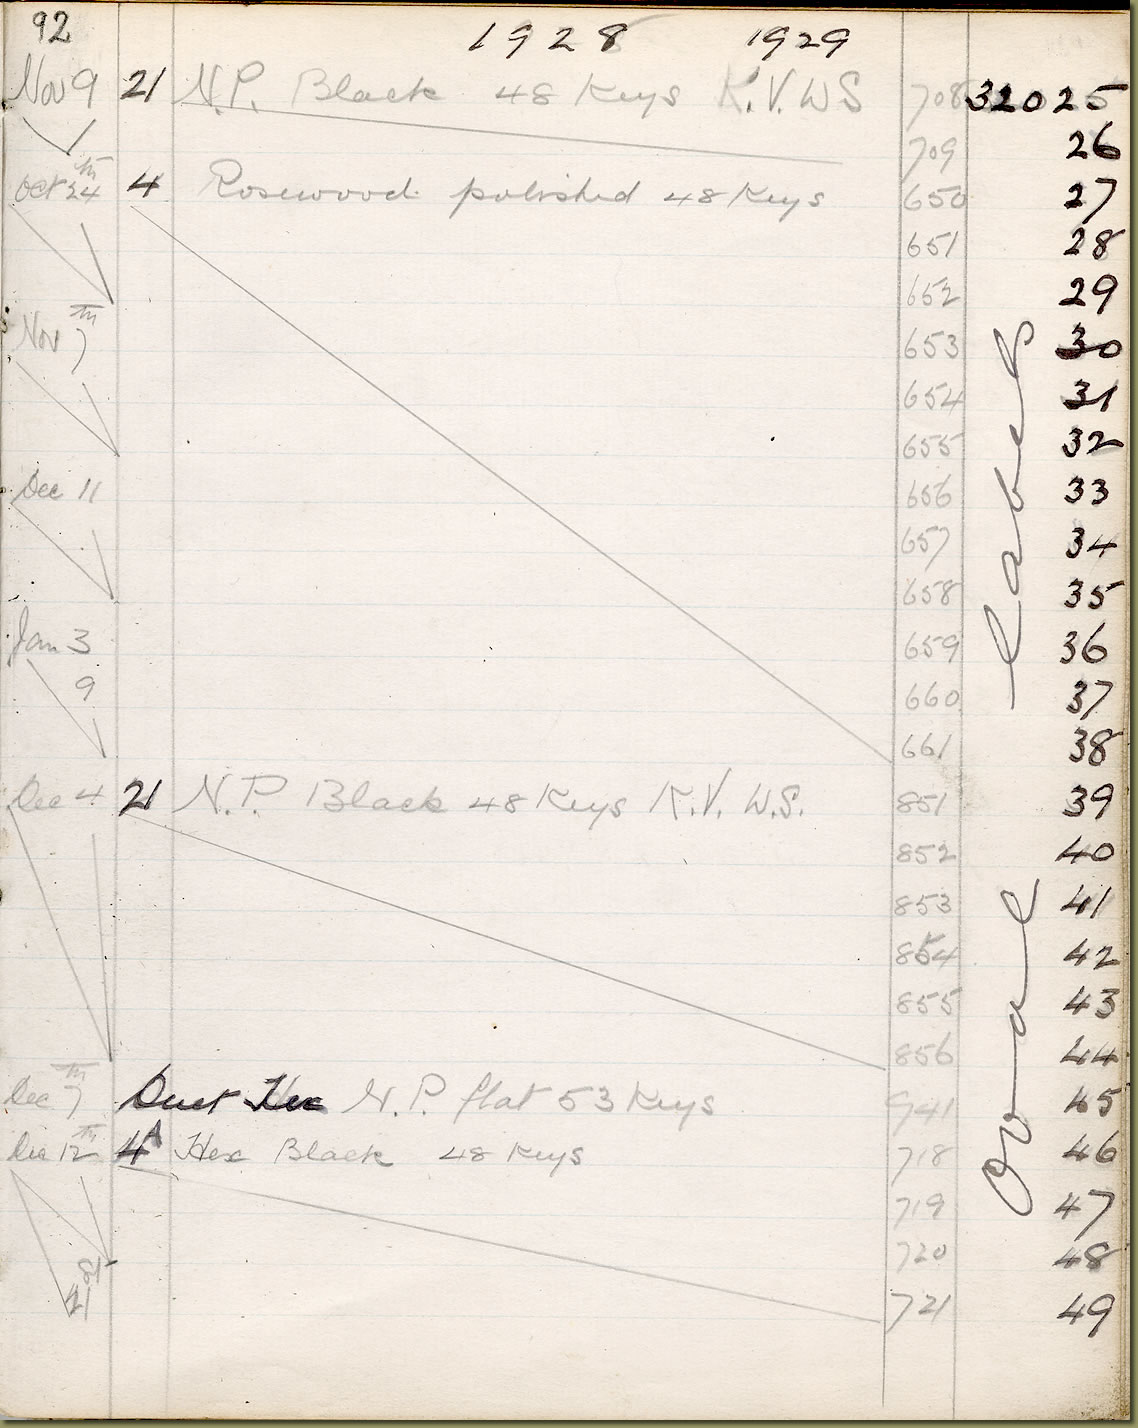 92
1928 1929
Nov 9 21 N.P. Black 48 Keys K.V. WS 708 32025
709 26
Oct 24th 4 Rosewood polished 48 Keys 650 27
651 28
652 29
Nov 7th 653 30
654 31
655 32
Dec 11 656 33
657 34
658 35
Jan 3 659 36
9 660 37
661 38
Dec 4 21 N.P. Black 48 Keys K.V. W.S. 851 39
852 40
853 41
854 42
855 43
856 44
Dec 7th Duet Hex N.P. flat 53 Keys 941 45
Dec 12th 4A Hex Black 48 Keys 718 46
719 47
720 48
21st 721 49
Oval Labels